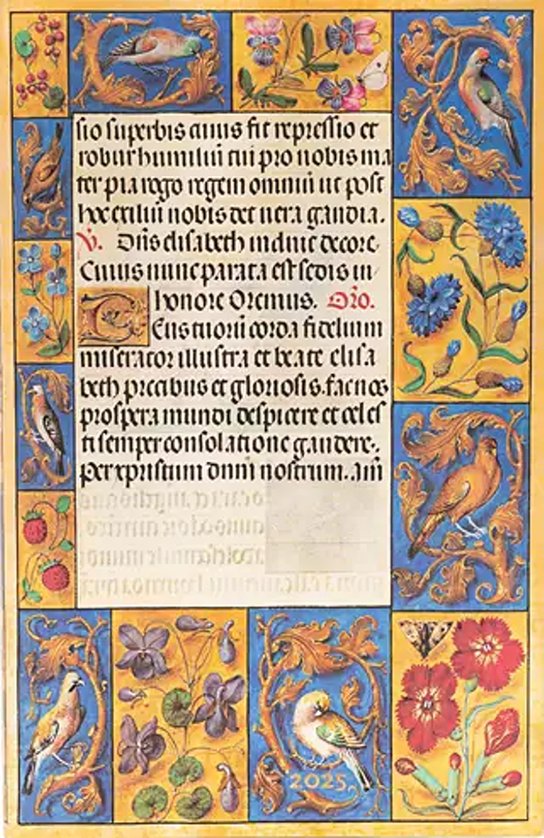 sio superbis cuius fit repressio et
robur humiliū tui pro nobis ma
ter pia rogo regem omniū ut post
hoc exiliū nobis det vera gaudia.
V. Diis elisabeth induit decore
Cuius nunc parata est sedis in
honore Oremus. Oro.
Deus tuorū corda fidelium
miserator illustra et beate elisa
beth precibus et gloriosis fac nos
prospera mundi despicere et celes
ti semper consolatione gaudere.
Per xpristum dnm nostrum. am
2025